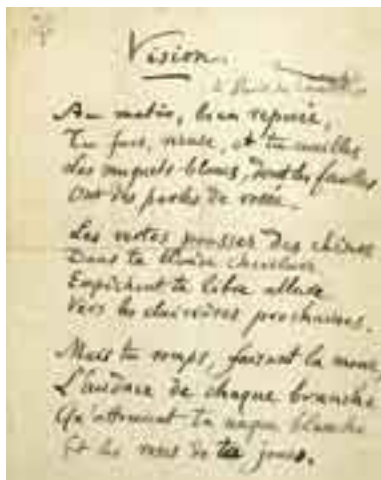 Vision
à Puvis de
Au matin, bien reposée,
Tu fuis, rieuse, et tu cueilles
Les muguets blancs, dont les feuilles
Ont des perles de rosée.
Les vertes pousses des chênes
Dans ta blonde chevelure
Empêchent ta libre allure
Vers les clairières prochaines.
Mais tu romps, faisant la moue,
L'audace de chaque branche
Qu'attiraient ta nuque blanche
Et les roses de ta joue.